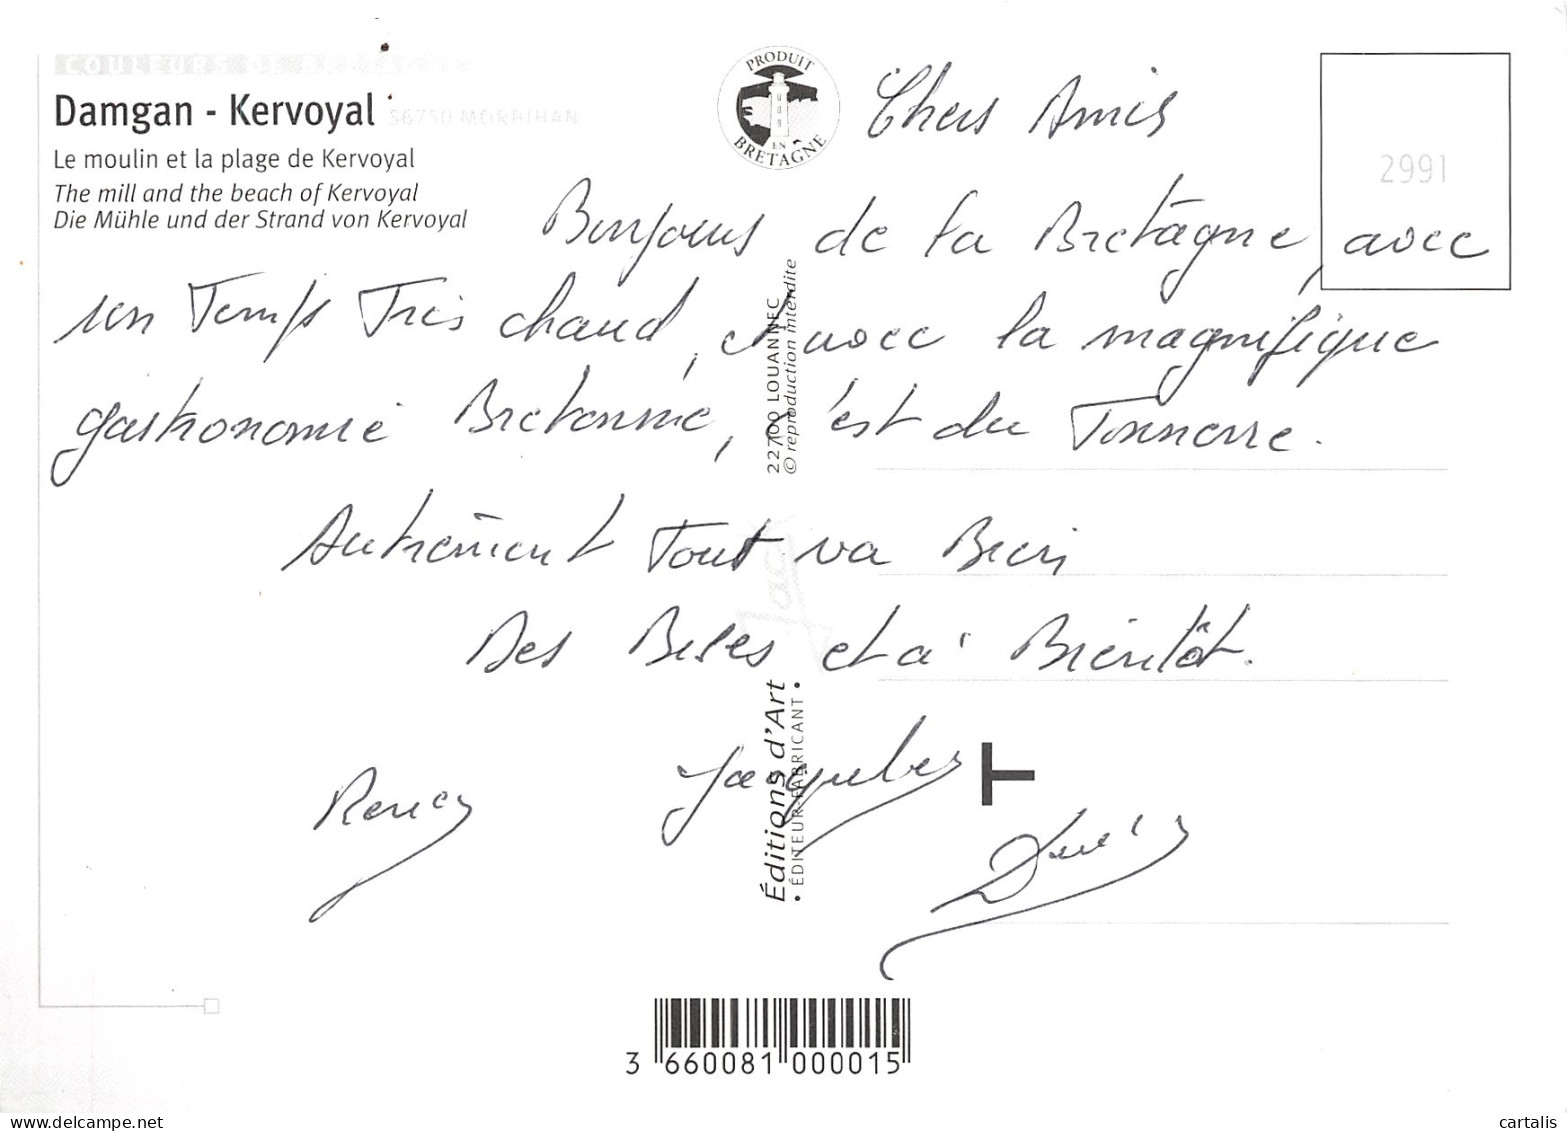 COULEURS DE BRETAGNE
Damgan - Kervoyal 56750 MORBIHAN
Le moulin et la plage de Kervoyal
The mill and the beach of Kervoyal
Die Mühle und der Strand von Kervoyal
PRODUIT EN BRETAGNE
2991
Chers Amis
Bonjours de la Bretâgne, avec
un Temps Très chaud, et avec la magnifique
gastronomie Bretonne, c'est du Tonnerre.
Autrement Tout va Bien
Des Bises et à Bientôt.
Jacquelines
22700 LOUANNEC
© reproduction interdite
Jack
Éditions d'Art
• ÉDITEUR-FABRICANT •
T
3 660081 000015
cartalis
www.delcampe.net